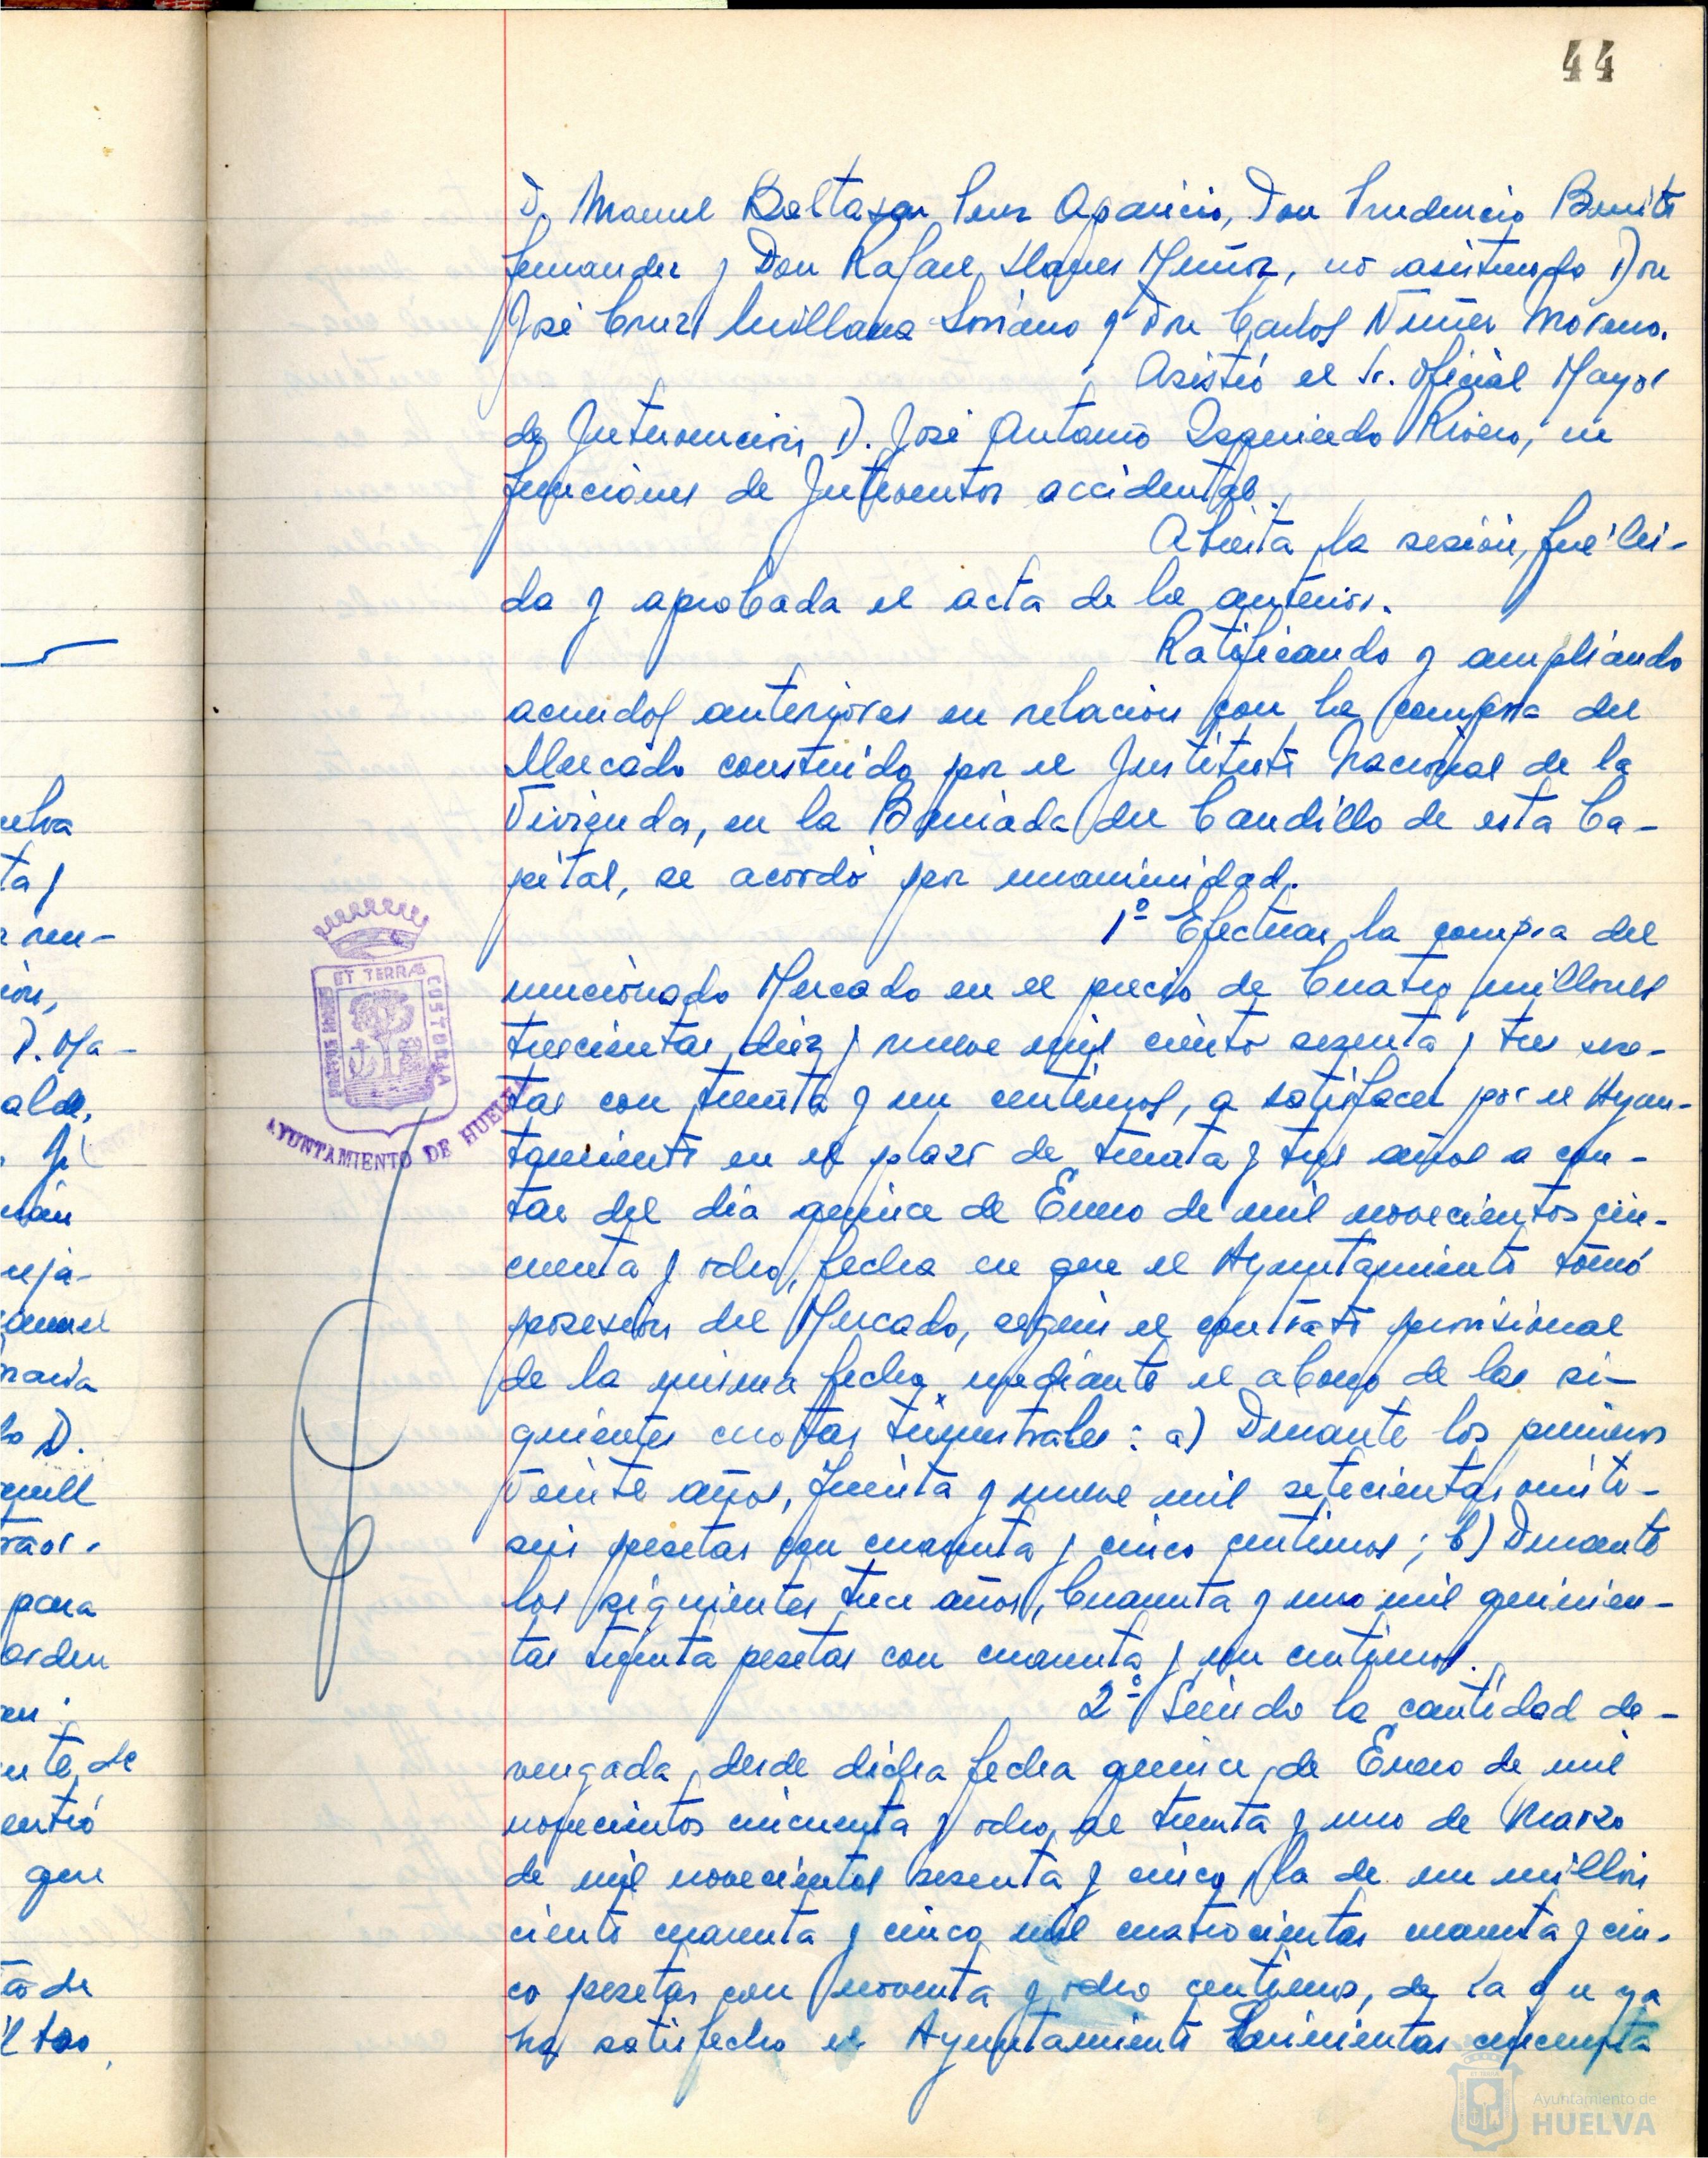 44
D. Manuel Baltasar Pérez Aparicio, Don Prudencio Benito
Fernandez y Don Rafael Llanes Muñoz, no asistiendo Don
José Cruz Quillana Soriano y Don Carlos Núñez Moreno.
Asistió el Sr. Oficial Mayor
de Intervención D. José Antonio Izquierdo Rivero, en
funciones de Interventor accidental.
Abierta la sesión, fué lei-
da y aprobada el acta de la anterior.
Ratificando y ampliando
acuerdos anteriores en relación con la compra del
Mercado construido por el Instituto Nacional de la
Vivienda, en la Barriada del Caudillo de esta Ca-
pital, se acordó por unanimidad.
1º Efectuar la compra del
mencionado Mercado en el precio de Cuatro millones
trescientas diez y nueve mil ciento sesenta y tres pese-
tas con treinta y un centimos, a satisfacer por el Ayun-
tamiento en el plazo de treinta y tres años a con-
tar del dia quince de Enero de mil novecientos cin-
cuenta y ocho, fecha en que el Ayuntamiento tomó
posesión del Mercado, según el contrato provisional
de la misma fecha, mediante el abono de las si-
guientes cuotas trimestrales: a) Durante los primeros
veinte años, treinta y nueve mil setecientas veinti-
seis pesetas con cuarenta y cinco centimos; b) Durante
los siguientes trece años, Cuarenta y uno mil quinien-
tas treinta pesetas con cuarenta y un centimos.
2º Siendo la cantidad de-
vengada, desde dicha fecha quince de Enero de mil
novecientos cincuenta y ocho, al treinta y uno de Marzo
de mil novecientos sesenta y cinco, la de un millón
ciento cuarenta y cinco mil cuatrocientas cuarenta y cin-
co pesetas con noventa y ocho centimos, de la que ya
ha satisfecho el Ayuntamiento Quinientas cincuenta
ET TERRAE CUSTODIA
PORTUS MARIS
AYUNTAMIENTO DE HUELVA
Ayuntamiento de
HUELVA